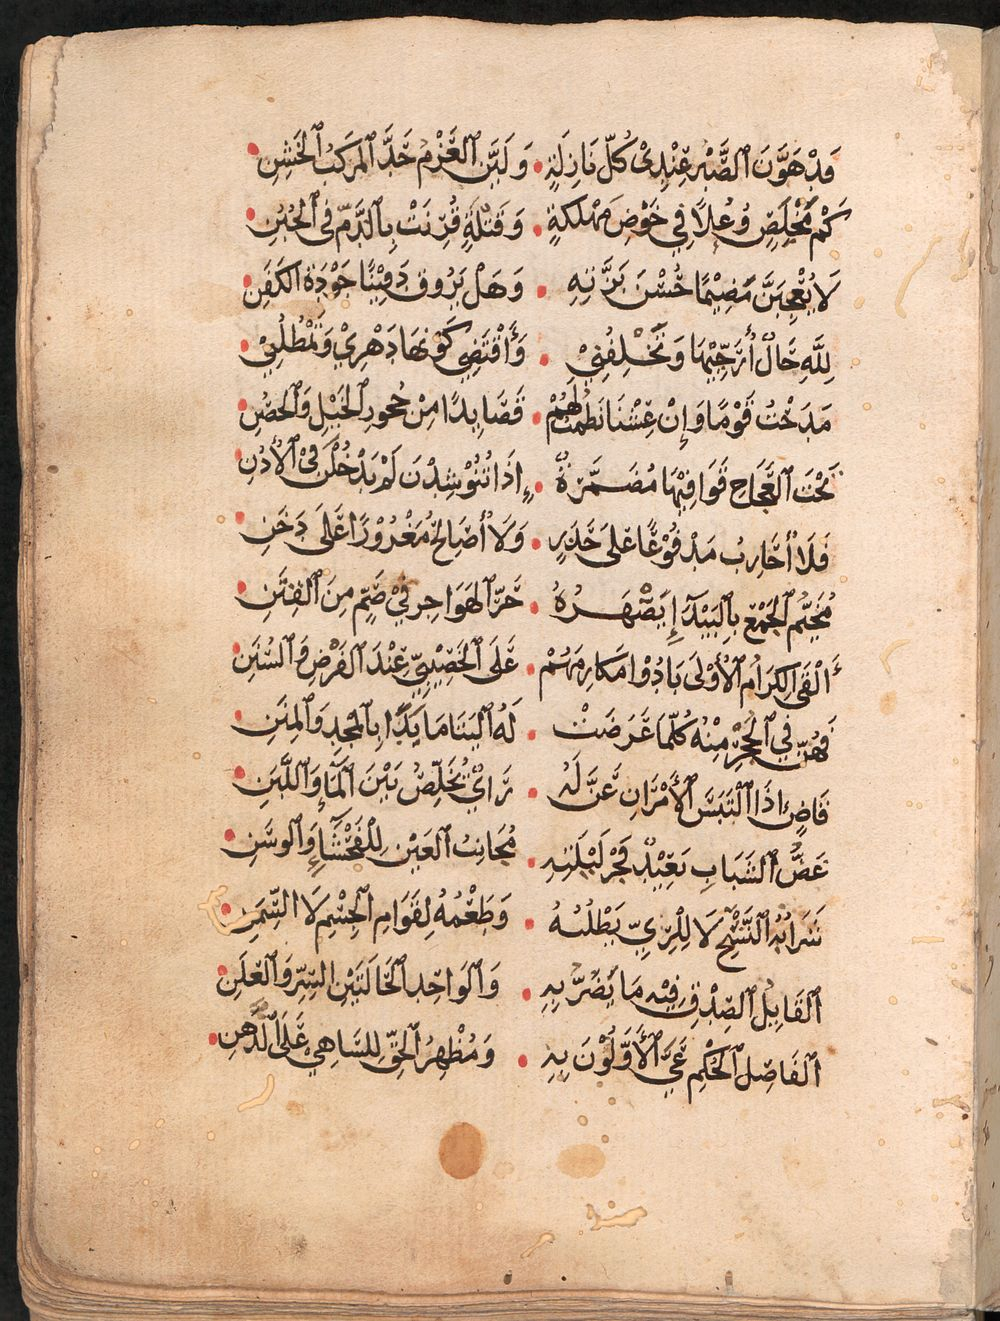 قَدْ هَوَّنَ ٱلصَّبْرُ عِنْدِيْ كُلَّ نَازِلَةٍ • وَلَيَّنَ ٱلْعَزْمُ حَدَّ ٱلمَرْكَبِ ٱلْخَشِنِ
كَمْ مَخْلَصٍ وَعُلاً فِي خَوْضِ مَهْلَكَةٍ • وَقَتْلَةٍ قُرِنَتْ بِٱلذَّمِّ فِي ٱلْجُبُنِ
لَا يُعْجِبَنَّ مَضِيْمًا حُسْنُ بَزَّتِهِ • وَهَلْ يَرُوْقُ دَفِيْنًا جَوْدَةُ الكَفَنِ
لِلَّهِ حَالٌ أُرَجِّيْهَا وَتُخْلِفُنِيْ • وَأَقْتَضِي كَوْنَهَا دَهْرِيْ وَيَمْطُلُنِيْ
مَدَحْتُ قَوْمًا وَإِنْ عِشْنَا نَظَمْتُ لَهُمْ • قَصَائِدًا مِنْ جُحُورِ ٱلْخَيْلِ وَٱلْحُصُنِ
تَحْتَ ٱلْعَجَاجِ قَوَافِيْهَا مُضَمَّرَةٌ • إِذَا تُنُوْشِدْنَ لَمْ يَدْخُلْنَ فِيْ ٱلْأُذُنِ
فَلَا أُحَارِبُ مَدْفُوْعًا عَلَى جُدُرٍ • وَلَا أُصَالِحُ مَغْرُوْرًا عَلَى دَخَنِ
مُخَيِّمُ ٱلْجَمْعِ بِٱلْبَيْدَآءِ يَصْهَرُهُ • حَرُّ ٱلْهَوَاجِرِ فِيْ صُمٍّ مِنَ ٱلْفِتَنِ
أَلْقَى ٱلْكِرَامُ ٱلْأُوْلَى بَادُوْا مَكَارِمَهُمْ • عَلَى ٱلْخَصِيْبِيِّ عِنْدَ ٱلْفَرْضِ وَٱلسُّنَنِ
فَهُنَّ فِي ٱلْحَجْرِ مِنْهُ كُلَّمَا عَرَضَتْ • لَهُ ٱلْيَتَامَى بَدَا بِٱلْمَجْدِ وَٱلْمِنَنِ
قَاضٍ إِذَا ٱلْتَبَسَ ٱلْأَمْرَانِ عَنَّ لَهُ • رَأْيٌ يُخَلِّصُ بَيْنَ ٱلْمَآءِ وَٱللَّبَنِ
غَضُّ ٱلشَّبَابِ بَعِيْدٌ فَجْرُ لَيْلَتِهِ • مُجَانِبُ ٱلْعَيْنِ لِلْفَحْشَآءِ وَٱلْوَسَنِ
شَرَابُهُ ٱلنَّشْحُ لَا لِلْرِيِّ يَطْلُبُهُ • وَطَعْمُهُ لِقَوَامِ ٱلْجِسْمِ لَا السِّمَنِ
ٱلْقَائِلُ ٱلصِّدْقَ فِيْهِ مَا يَضُرُّ بِهِ • وَٱلْوَاحِدُ ٱلْحَالَتَيْنِ السِّرِّ وَٱلْعَلَنِ
ٱلْفَاصِلُ ٱلْحُكْمَ عَيَّ ٱلْأَوَّلُوْنَ بِهِ • وَمُظْهِرُ ٱلْحَقِّ لِلسَّاهِيْ عَلَى ٱلذَّهِنِ